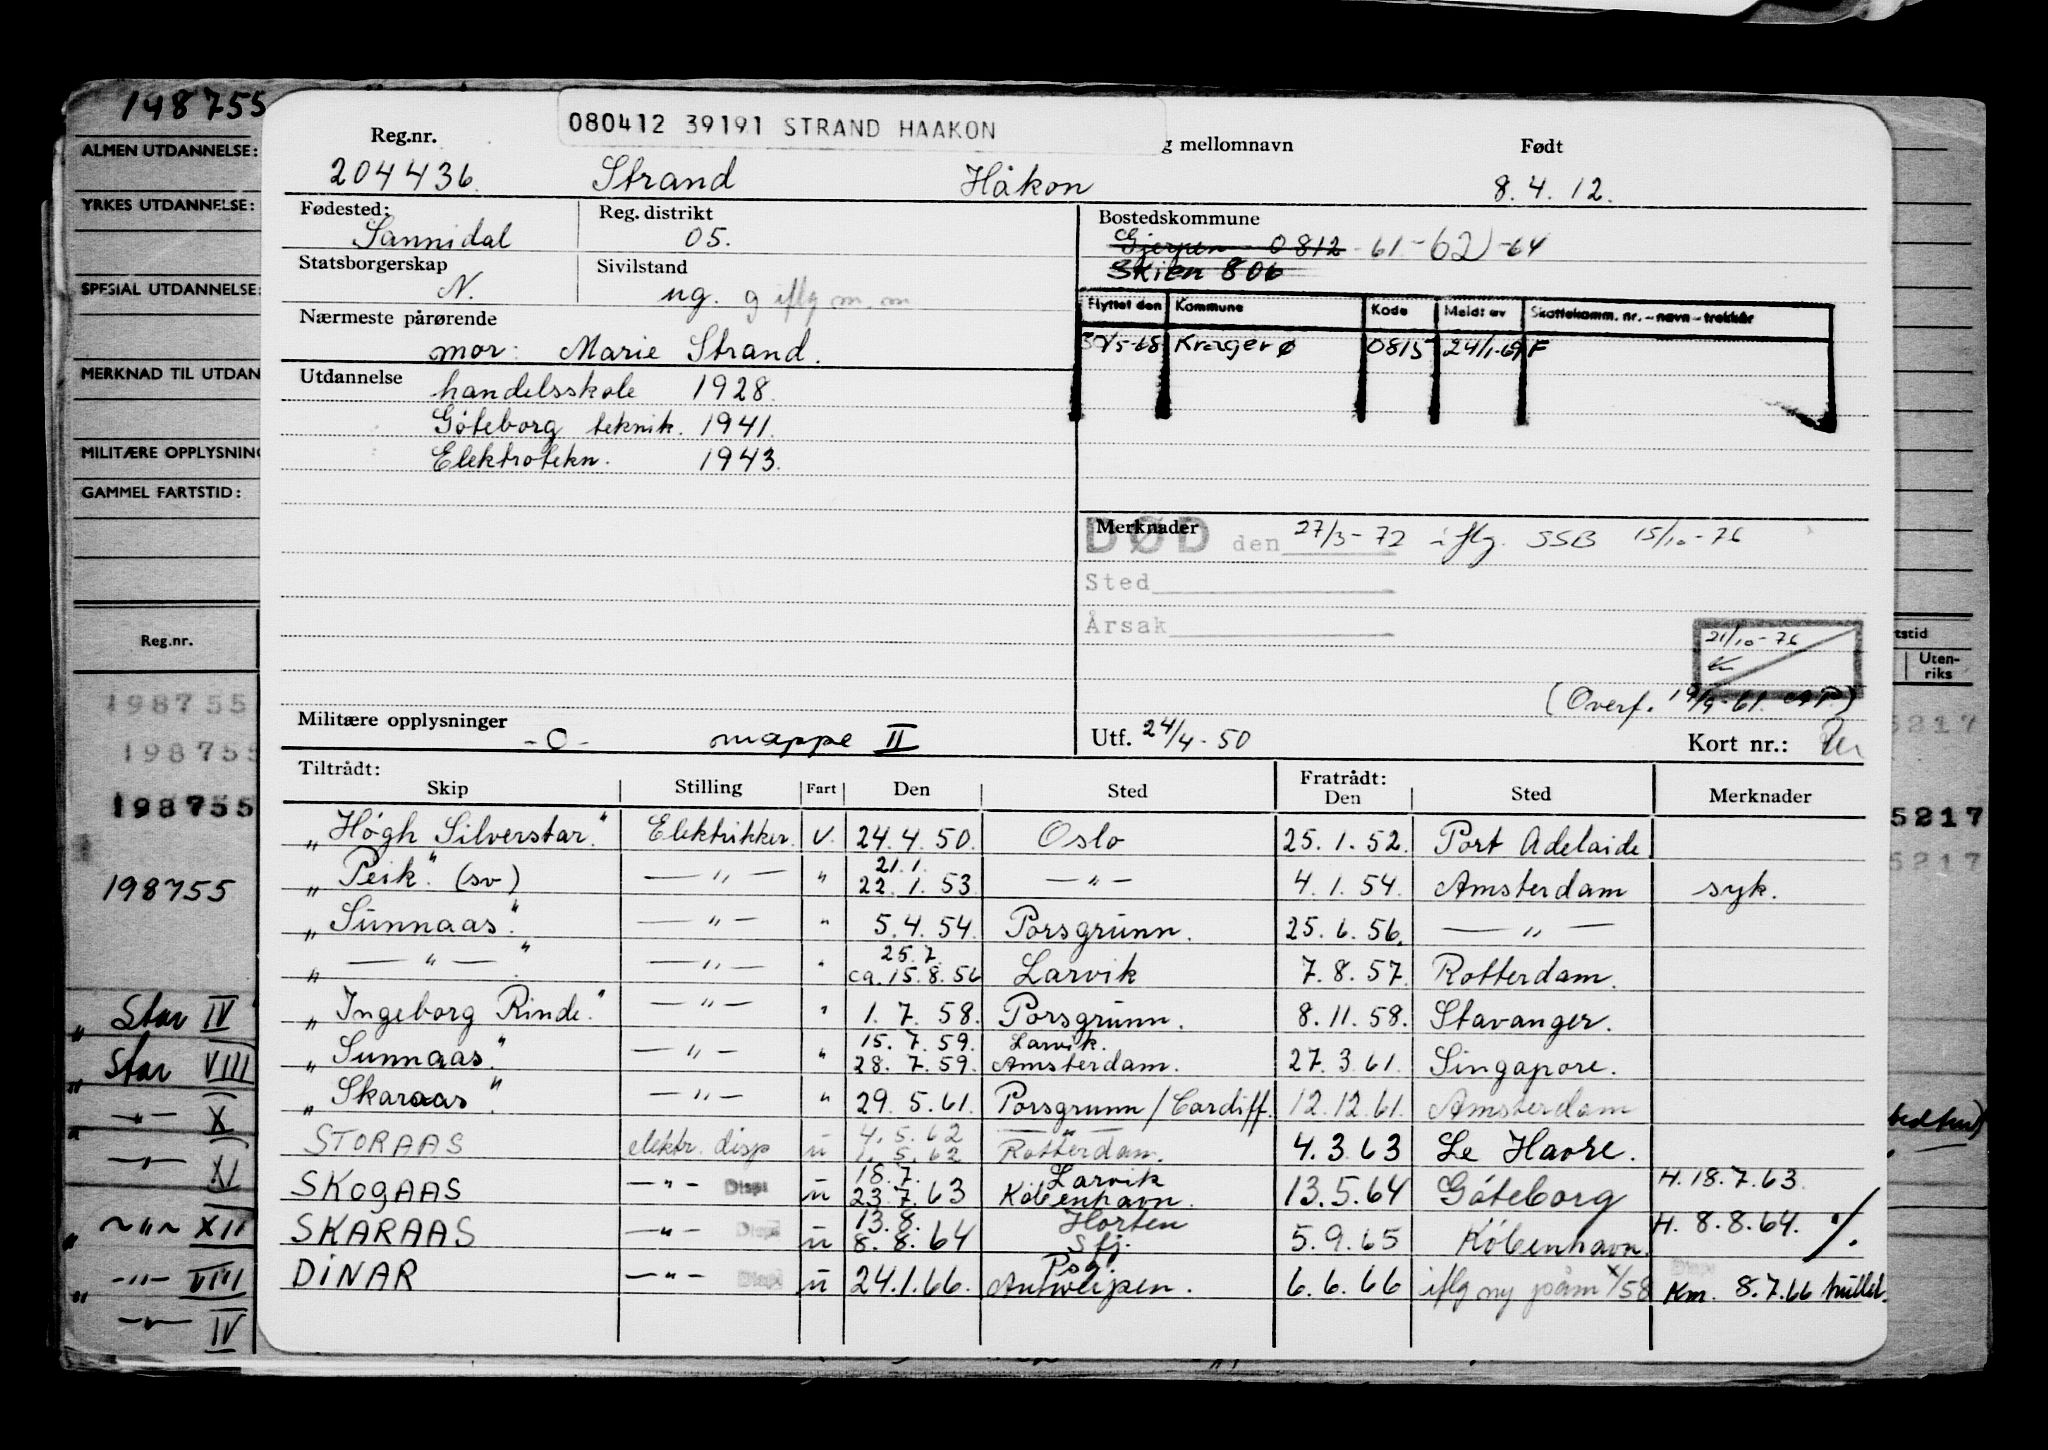 198755
ALMEN UTDANNELSE:
YRKES UTDANNELSE:
SPESIAL UTDANNELSE:
MERKNAD TIL UTDAN
MILITÆRE OPPLYSNIN
GAMMEL FARTSTID:
Reg.nr.
198755
198755
198755
198755
„ Star IV "
„ Star VIII
„ —"— X
—"— XI
„ ~"~ XII
„ —"— VIII
—"— IV
080412 39191 STRAND HAAKON
Reg.nr. g mellomnavn Født
204436. Strand Håkon 8.4.12.
Fødested: Sannidal
Reg. distrikt 05.
Statsborgerskap N.
Sivilstand ug. g iflg m.m
Nærmeste pårørende
mor: Marie Strand.
Utdannelse handelsskole 1928.
Göteborg teknik. 1941.
Elektrotekn. 1943.
Bostedskommune
Gjerpen 0812 -61-62)-64
Skien 806
Flyttet den Kommune Kode Meldt av Skattekomm. nr. – navn – trekkår
30/5-68 Kragerø 0815 24/1-69 F
Merknader
DØD den 27/3-72 iflg. SSB 15/10-76
Sted
Årsak
21/10-76
(Overf. 19/9-61.
Militære opplysninger -0- mappe II
Utf. 24/4-50 Kort nr.:
Tiltrådt: Fratrådt:
Skip Stilling Fart Den Sted Den Sted Merknader
„Høgh Silverstar." Elektrikker. v. 24.4.50. Oslo 25.1.52. Port Adelaide.
21.1.
„Peik". (sv) —"— " 22.1.53 —"— 4.1.54. Amsterdam syk.
„Sunnaas." —"— " 5.4.54. Porsgrunn. 25.6.56. —"—
25.7.
„—"—." —"— " ca.15.8.56 Larvik 7.8.57. Rotterdam.
„Ingeborg Rinde." —"— " 1.7.58. Porsgrunn. 8.11.58. Stavanger.
15.7.59. Larvik.
„Sunnaas." —"— " 28.7.59. Amsterdam. 27.3.61. Singapore.
„Skaraas". —"— " 29.5.61. Porsgrunn/Cardiff. 12.12.61. Amsterdam
4.5.62 —"—
STORAAS elektr. disp u 1.5.62 Rotterdam. 4.3.63 Le Havre.
18.7. Larvik
SKOGAAS —"— Disp u 23.7.63 København. 13.5.64 Göteborg H.18.7.63.
13.8. Horten
SKARAAS —"— Disp u 8.8.64 Sfj. 5.9.65 København. H. 8.8.64. %.
Psg.
DINAR —"— Disp u 24.1.66. Antwerpen. 6.6.66 iflg ny påm /58 Km. 8.7.66
tstid
Uten-
riks
5217
5217
5217